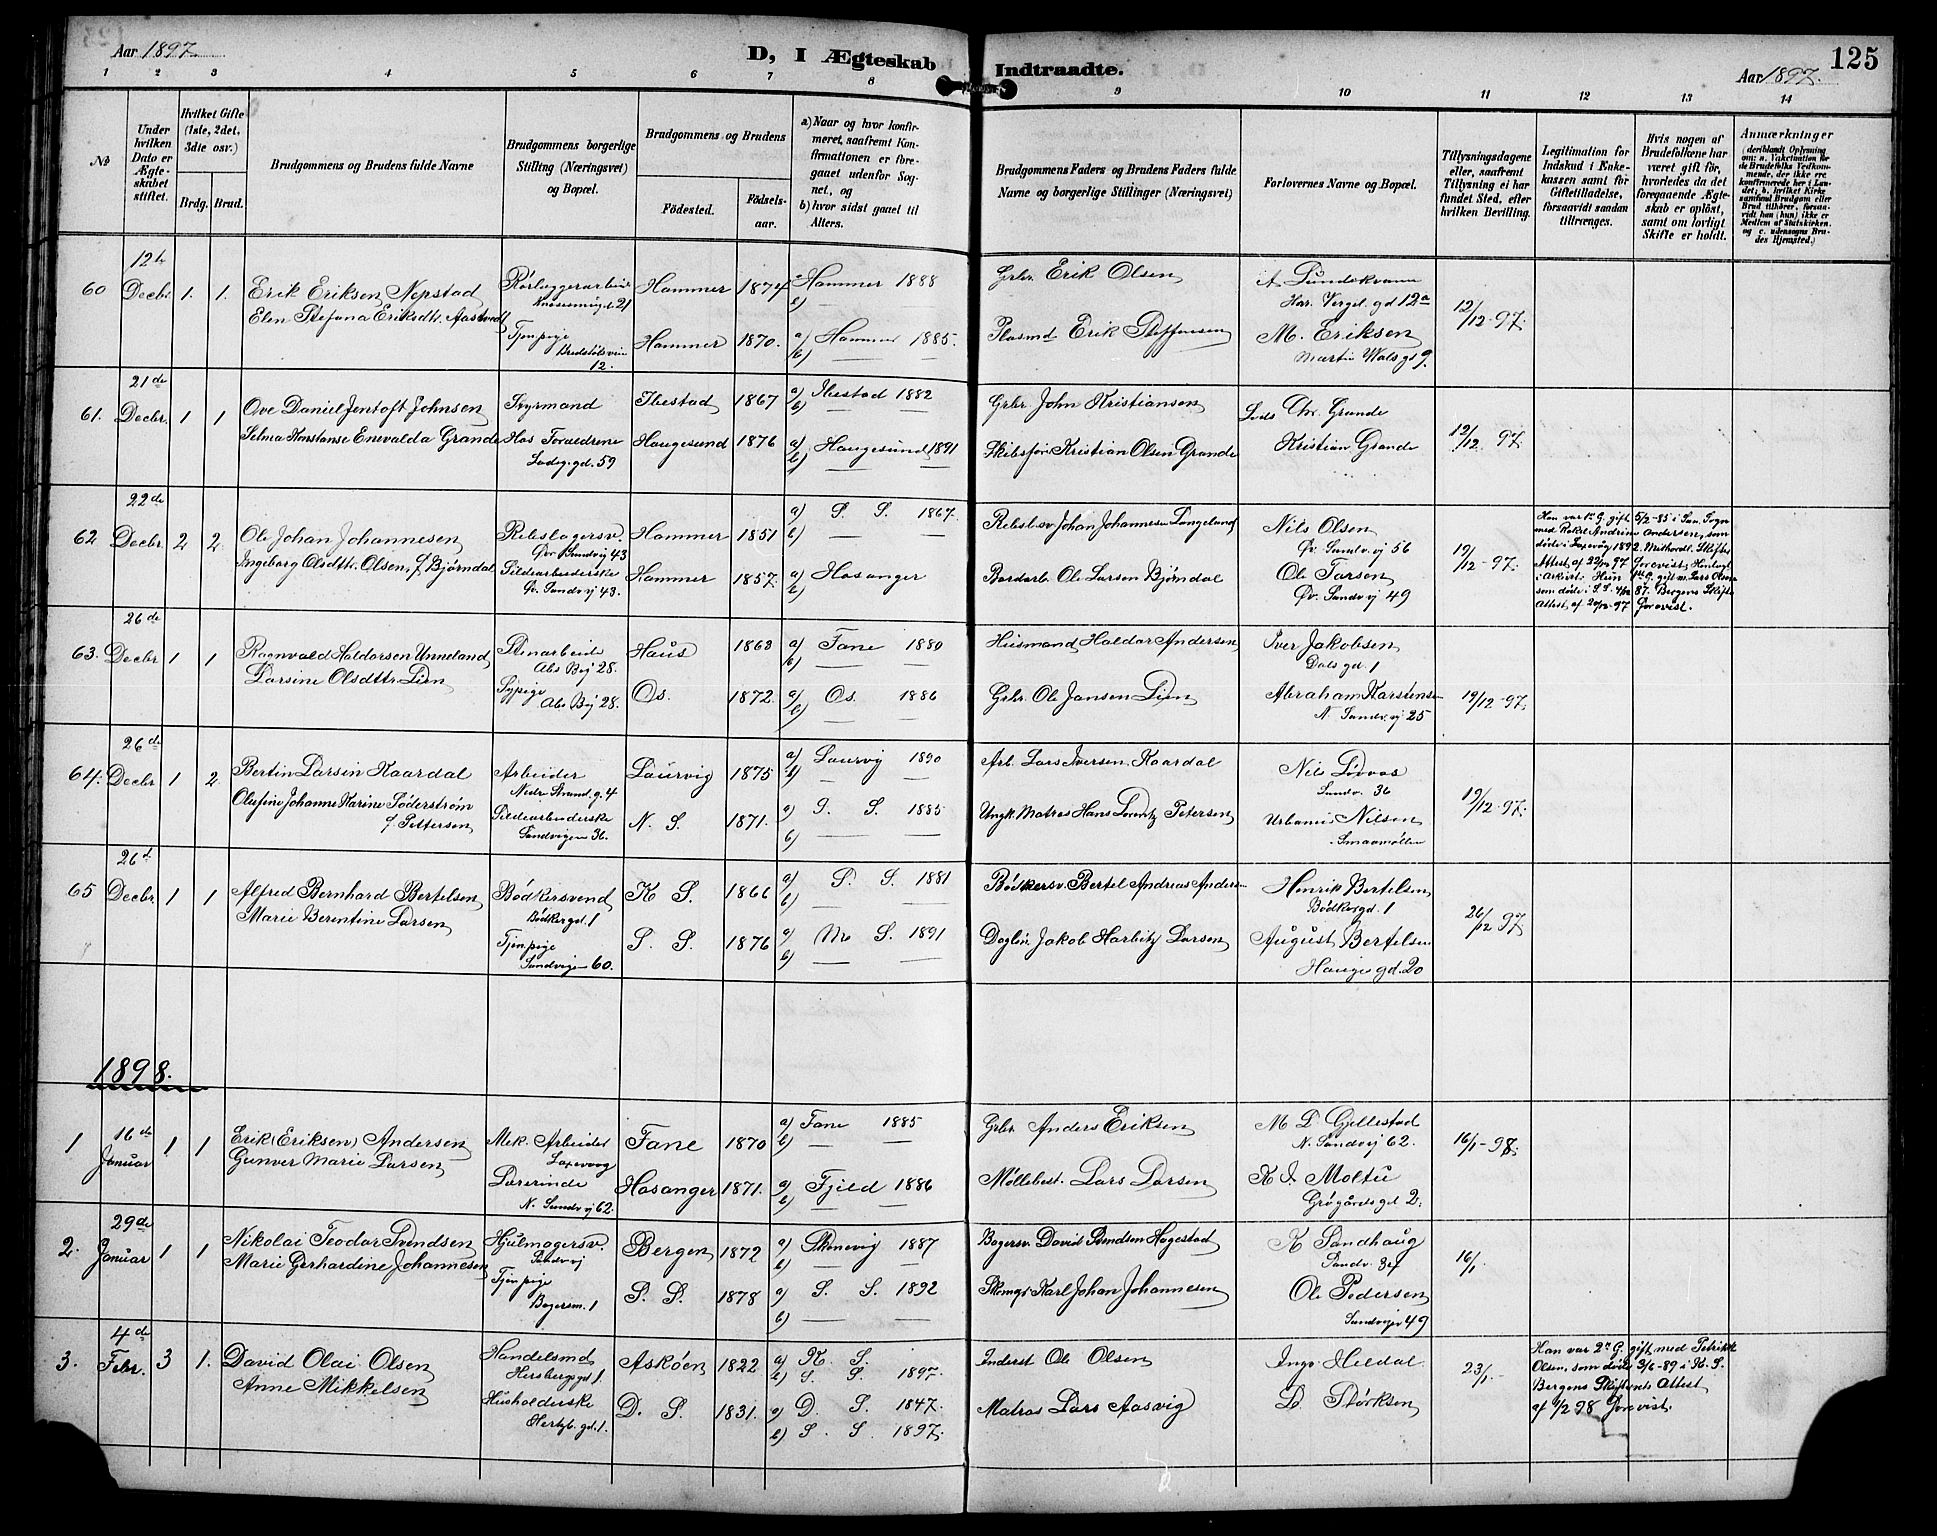 Aar 1897.
D, I Ægteskab Indtraadte.
125
Aar 1897.
1 2 3 4 5 6 7 8 9 10 11 12 13 14
No
Under hvilken Dato er Ægteskabet stiftet.
Hvilket Gifte (1ste, 2det, 3die osv.)
Brdg. Brud.
Brudgommens og Brudens fulde Navne
Brudgommens borgerlige Stilling (Næringsvei) og Bopæl.
Brudgommens og Brudens
Födested.
Födselsaar.
a) Naar og hvor konfirmeret, saafremt Konfirmationen er foregaaet udenfor Sognet, og
b) hvor sidst gaaet til Alters.
Brudgommens Faders og Brudens Faders fulde Navne og borgerlige Stillinger (Næringsvei)
Forlovernes Navne og Bopæl.
Tillysningsdagene eller, saafremt Tillysning ei har fundet Sted, efter hvilken Bevilling.
Legitimation for Indskud i Enkekassen samt for Giftetilladelse, forsaavidt saadan tiltrænges.
Hvis nogen af Brudefolkene har været gift för, hvorledes da det foregaaende Ægteskab er oplöst, samt om lovligt Skifte er holdt.
Anmærkninger
60 12te Decbr 1. 1. Erik Eriksen Nepstad Rörleggerarbeid 21 Hammer 1874 a) Hammer 1888 Grbr. Erik Olsen
b) — Har. Vergel. gd 12a 12/12 97.
Elen Stefana Eriksdtr. Aastvedt Tjenpige 12. Hammer 1870. a) Hammer 1885. Plasmd Erik Steffensen M. Eriksen
b) — Martin Wals gd 9.
61. 21de Decbr. 1 1 Ove Daniel Jentoft Johnsen Styrmand Ibestad 1867 a) Ibestad 1882 Grbr John Kristiansen Chr. Grande
b) — 12/12 97.
Selma Konstanse Enevalda Grande Hos Foraldrene Haugesund 1876 a) Haugesund 1891 Skibsför. Kristian Olsen Grande Kristian Grande
Ladeg. gd. 59 b) —
62 22de Decbr. 2 2. Ole Johan Johannesen Rebslagersv. Hammer 1851 a) S. S. 1867. Rebslsv Johan Johannesen Langeland Nils Olsen
Øv Sandvij 43 b) — Øv. Sandvij 56 19/12-97.
Ingeborg Olsdtr. Olsen, f. Bjørndal Sildearbeiderske Hammer 1857. a) Hosanger Bordarb. Ole Larsen Bjørndal Ole Larsen
Øv. Sandvij 43. b) — Øv. Sandvij 49
Han var 1e G. gift 5/2-85 i San. Sogn
med Rakel Andrine Andersen, som
døde i Laxevåg 1892.
63. 26de Decbr 1 1 Ragnvald Haldorsen Unneland Stenarbeide Haus 1863 a) Fane 1880 Husmand Haldor Andersen Iver Jakobsen
28. b) — Dals gd. 1
Larsine Olsdttr. Lien Sypige Os. 1872. a) Os. 1886 Grbr. Ole Jansen Lien Abraham Karstensen 19/12-97.
28. b) — N. Sandvij 25
64. 26de Decbr 1 2. Bertin Larsen Kaardal Arbeider Laurvig 1875 a) Laurvig 1890 Arb. Lars Iversen Kaardal
Nedr Strand. g. 4 b) — Sandv. 36 19/12-97.
Olufine Johanne Karine Söderström Sildearbeiderske N. S. 1871. a) S. S. 1885 Ungk. Matros Hans Lorentz Petersen Urbanus Nilsen
f. Pettersen Sandvigen 36. b) — Smaamøllen
65 26d Decbr. 1 1 Alfred Bernhard Bertelsen Bødkersvend K S. 1866 a) S. S. 1881 Bødkersv. Bertel Andreas Andersen Henrik Bertelsen
Bødkergd. 1 b) — Bødkergd. 1 26/12 97
Marie Berentine Larsen Tjenpige S. S. 1876 a) M. S. 1891 Daglön. Jakob Harbitz Larsen August Bertelsen
Sandvigen 60. b) — Hauges gd. 20
1898.
1 16de Januar 1 1 Erik (Eriksen) Andersen Mek. Arbeider Fane 1870 a) Fane 1885 Grbr Anders Eriksen M L Gjellestad
Laxevaag b) — N. Sandvij 62. 16/1-98.
Gunver Marie Larsen Lærerinde Hosanger 1871. a) Fjeld 1886 Møllebest. Lars Larsen K J. Moltu
N. Sandvij 62. b) — Grøgårds gd 2.
2. 29de Januar 1 1 Nikolai Teodor Svendsen Hjulmagersv. Bergen 1872 a) Skonevig 1887 Bagersv. David Svendsen Hagestad K Sandhaug
Sandvij b) — Sandv. 34 16/1.
Marie Gerhardine Johannesen Tjenpige S. S. 1878 a) S. S. 1892 Skomgr Karl Johan Johannesen Ole Pedersen
Bagersm. 1 b) — Sandvigen 49
3. 4de Febr. 3 1. David Olai Olsen Handelsmd Askøen 1822 a) K. S. Inderst Ole Olsen Inga Heldal
b) S. S. 1897. 23/1.
Anne Mikkelsen Husholderske D. S. 1831. a) D. S. 1847. Matros Lars Aasvig D. Størksen
b) S. S. 1897.
Han var 2n G. gift med Petrikke
Olsen, som døde 3/6-89 i K. S.
Bergens Skifterets Attest
af 1/2 98 forevist.